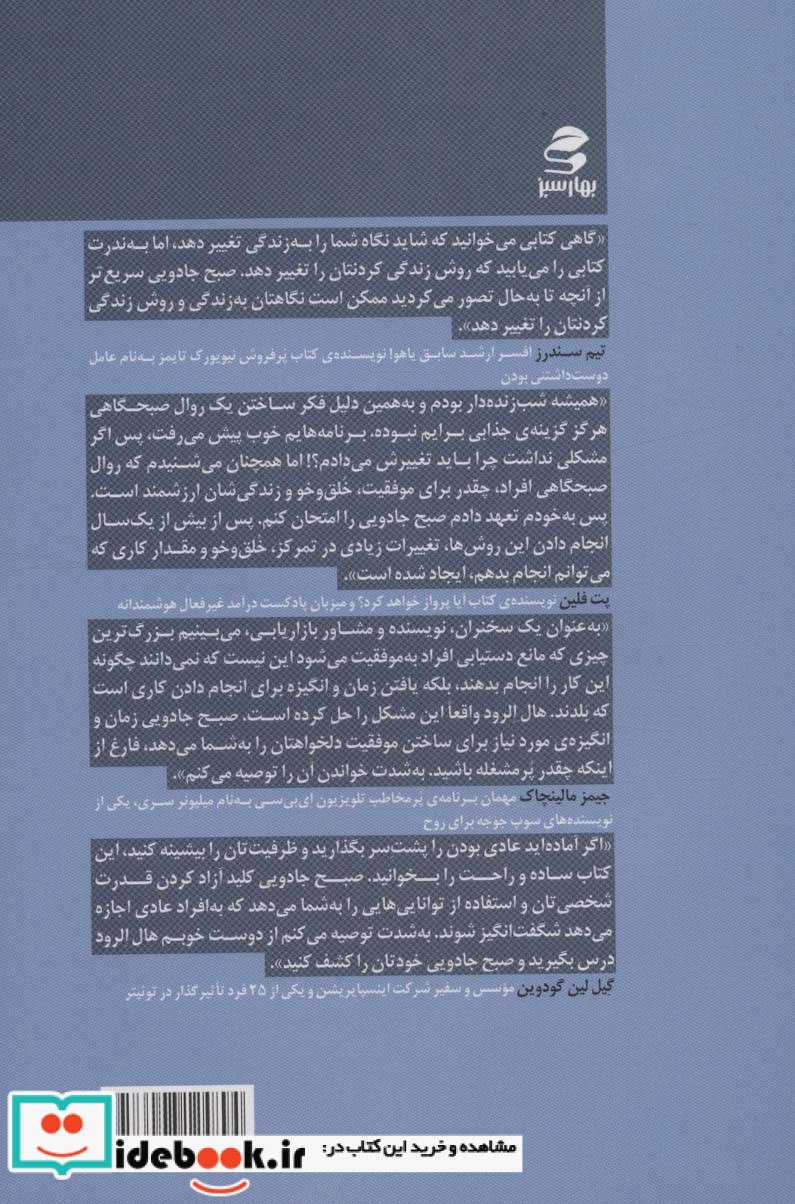 بهار سبز
«گاهی کتابی می‌خوانید که شاید نگاه شما را به‌زندگی تغییر دهد، اما به‌ندرت
کتابی را می‌یابید که روش زندگی کردنتان را تغییر دهد. صبح جادویی سریع‌تر
از آنچه تا به‌حال تصور می‌کردید ممکن است نگاهتان به‌زندگی و روش زندگی
کردنتان را تغییر دهد».
تیم سندرز افسر ارشد سابق یاهو! نویسنده‌ی کتاب پرفروش نیویورک تایمز به‌نام عامل
دوست‌داشتنی بودن
«همیشه شب‌زنده‌دار بودم و به‌همین دلیل فکر ساختن یک روال صبحگاهی
هرگز گزینه‌ی جذابی برایم نبوده. برنامه‌هایم خوب پیش می‌رفت، پس اگر
مشکلی نداشت چرا باید تغییرش می‌دادم؟! اما همچنان می‌شنیدم که روال
صبحگاهی افراد، چقدر برای موفقیت، خلق‌وخو و زندگی‌شان ارزشمند است.
پس به‌خودم تعهد دادم صبح جادویی را امتحان کنم. پس از بیش از یک‌سال
انجام دادن این روش‌ها، تغییرات زیادی در تمرکز، خلق‌وخو و مقدار کاری که
می‌توانم انجام بدهم، ایجاد شده است».
پت فلین نویسنده‌ی کتاب آیا پرواز خواهد کرد؟ و میزبان پادکست درآمد غیرفعال هوشمندانه
«به‌عنوان یک سخنران، نویسنده و مشاور بازاریابی، می‌بینیم بزرگ‌ترین
چیزی که مانع دستیابی افراد به‌موفقیت می‌شود این نیست که نمی‌دانند چگونه
این کار را انجام بدهند، بلکه یافتن زمان و انگیزه برای انجام دادن کاری است
که بلدند. هال الرود واقعاً این مشکل را حل کرده است. صبح جادویی زمان و
انگیزه‌ی مورد نیاز برای ساختن موفقیت دلخواهتان را به‌شما می‌دهد، فارغ از
اینکه چقدر پُرمشغله باشید. به‌شدت خواندن آن را توصیه می‌کنم».
جیمز مالینچاک مهمان برنامه‌ی پُرمخاطب تلویزیون ای‌بی‌سی به‌نام میلیونر سری، یکی از
نویسنده‌های سوپ جوجه برای روح
«اگر آماده‌اید عادی بودن را پشت‌سر بگذارید و ظرفیت‌تان را بیشینه کنید، این
کتاب ساده و راحت را بخوانید. صبح جادویی کلید آزاد کردن قدرت
شخصی‌تان و استفاده از توانایی‌هایی را به‌شما می‌دهد که به‌افراد عادی اجازه
می‌دهد شگفت‌انگیز شوند. به‌شدت توصیه می‌کنم از دوست خوبم هال الرود
درس بگیرید و صبح جادویی خودتان را کشف کنید».
گیل لین گودوین مؤسس و سفیر شرکت اینسپایریشن و یکی از ۲۵ فرد تأثیرگذار در توئیتر
مشاهده و خرید این کتاب در:
idebook.ir